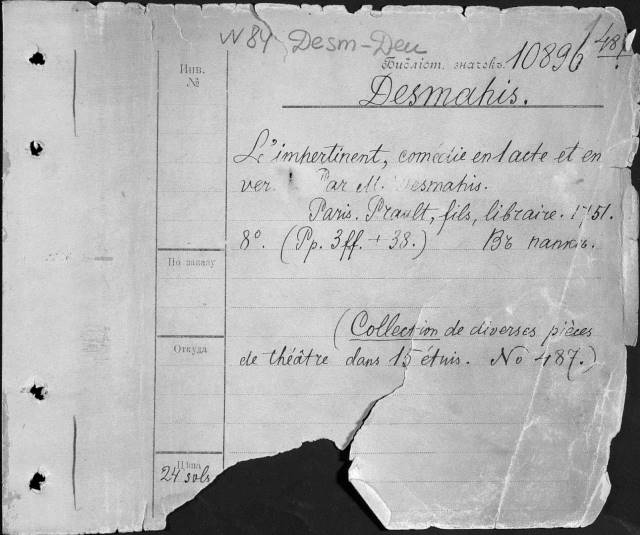 W 84 Desm-Deu
Инв.
№
Библіот. значекъ 10896 487.
Desmahis.
L'impertinent, comédie en 1 acte et en
ver. Par M. Desmahis.
Paris. Prault, fils, libraire. 1751.
8º. (Pp. 3 ff. + 38.) Въ папкѣ.
По заказу
(Collection de diverses pièces
Откуда
de théâtre dans 15 étuis. Nº 487.)
Цѣна
24 sols